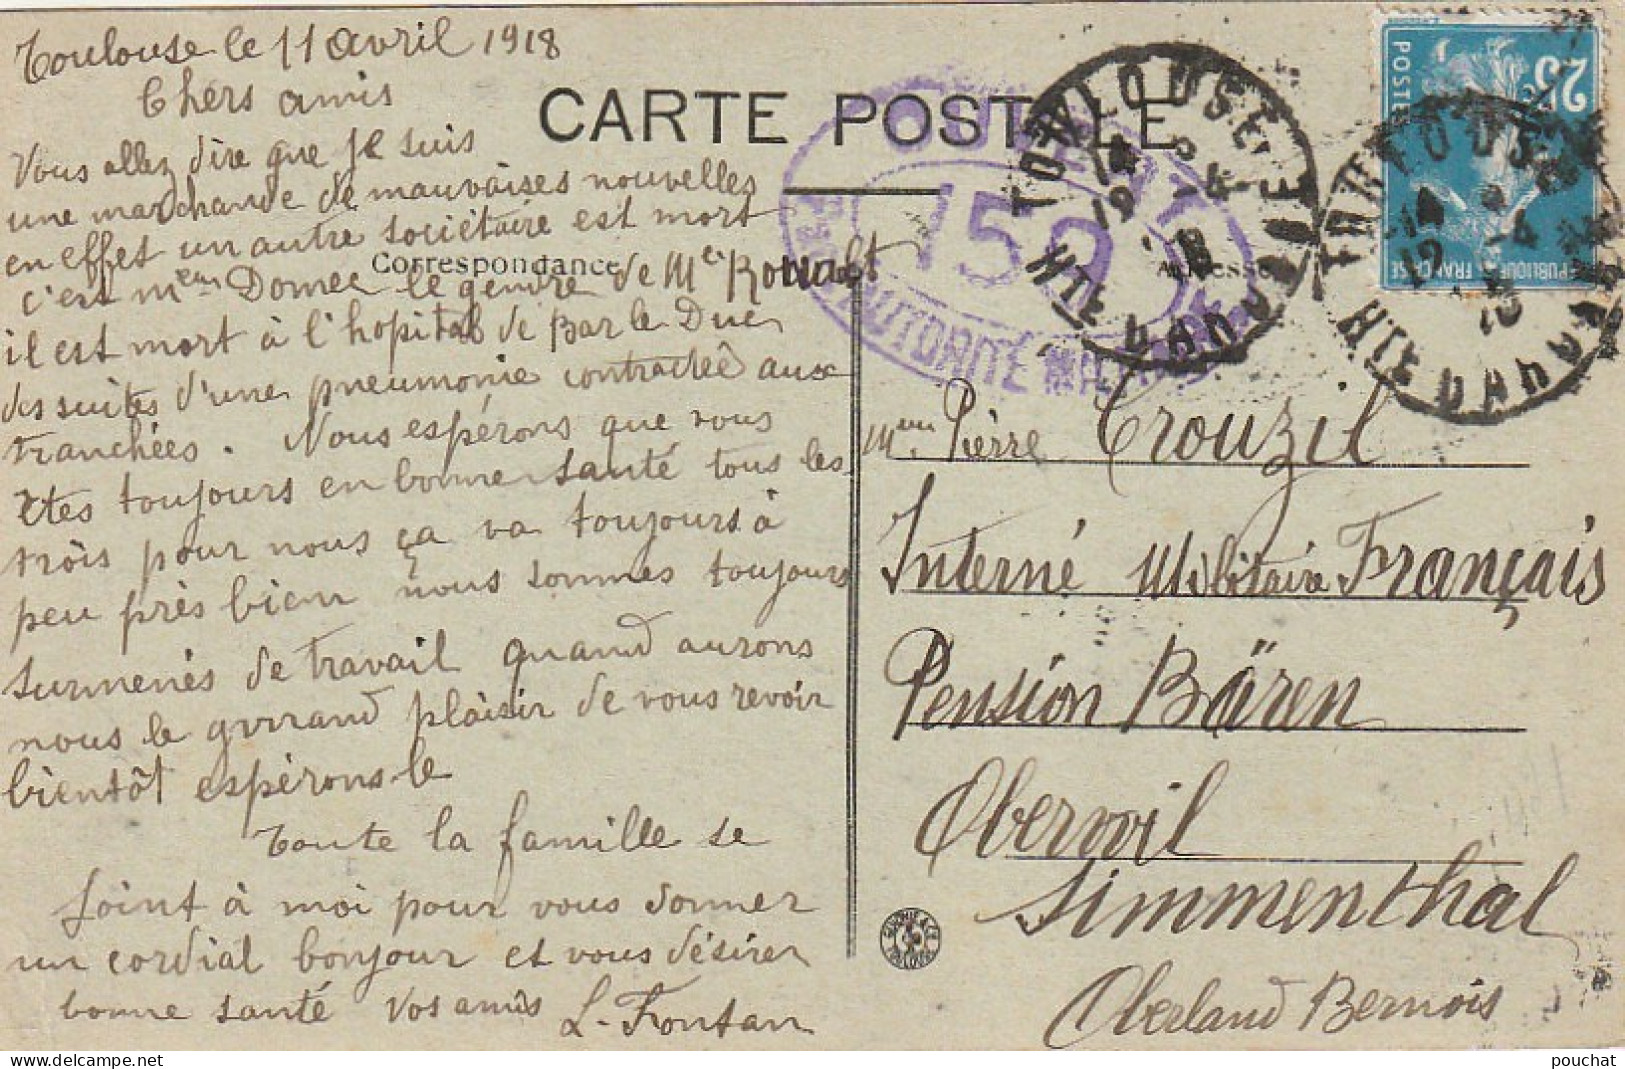 Toulouse le 11 avril 1918
Chers amis
Vous allez dire que je suis
une marchande de mauvaises nouvelles
en effet un autre sociétaire est mort
c'est Mr Domec le gendre de Mr
il est mort à l'hopital de Bar le Duc
des suites d'une pneumonie contractée aux
tranchées. Nous espérons que vous
êtes toujours en bonne santé tous les
trois pour nous ça va toujours à
peu près bien nous sommes toujours
surmenés de travail quand aurons
nous le grrrand plaisir de vous revoir
bientôt espérons-le
Toute la famille se
joint à moi pour vous donner
un cordial bonjour et vous désirer
bonne santé Vos amis L. Fontan
CARTE POSTALE
Correspondance
Adresse
OUVERT
150
AUTORITÉ MILITAIRE
TOULOUSE
HTE GARONNE
25
POSTES
REPUBLIQUE FRANÇAISE
Pierre Crouzil
Interné Militaire Français
Pension Bären
Oberwil
Simmenthal
Oberland Bernois
pouchat